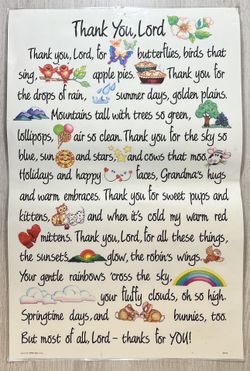 Thank You, Lord
Thank you, Lord, for butterflies, birds that
sing, apple pies. Thank you for
the drops of rain, summer days, golden plains.
Mountains tall with trees so green,
lollipops, air so clean. Thank you for the sky so
blue, sun and stars, and cows that moo.
Holidays and happy faces, Grandma's hugs
and warm embraces. Thank you for sweet pups and
kittens and when it's cold my warm red
mittens. Thank you, Lord, for all these things,
the sunsets glow, the robin's wings.
Your gentle rainbows 'cross the sky,
your fluffy clouds, oh so high.
Springtime days, and bunnies, too.
But most of all, Lord – thanks for YOU!